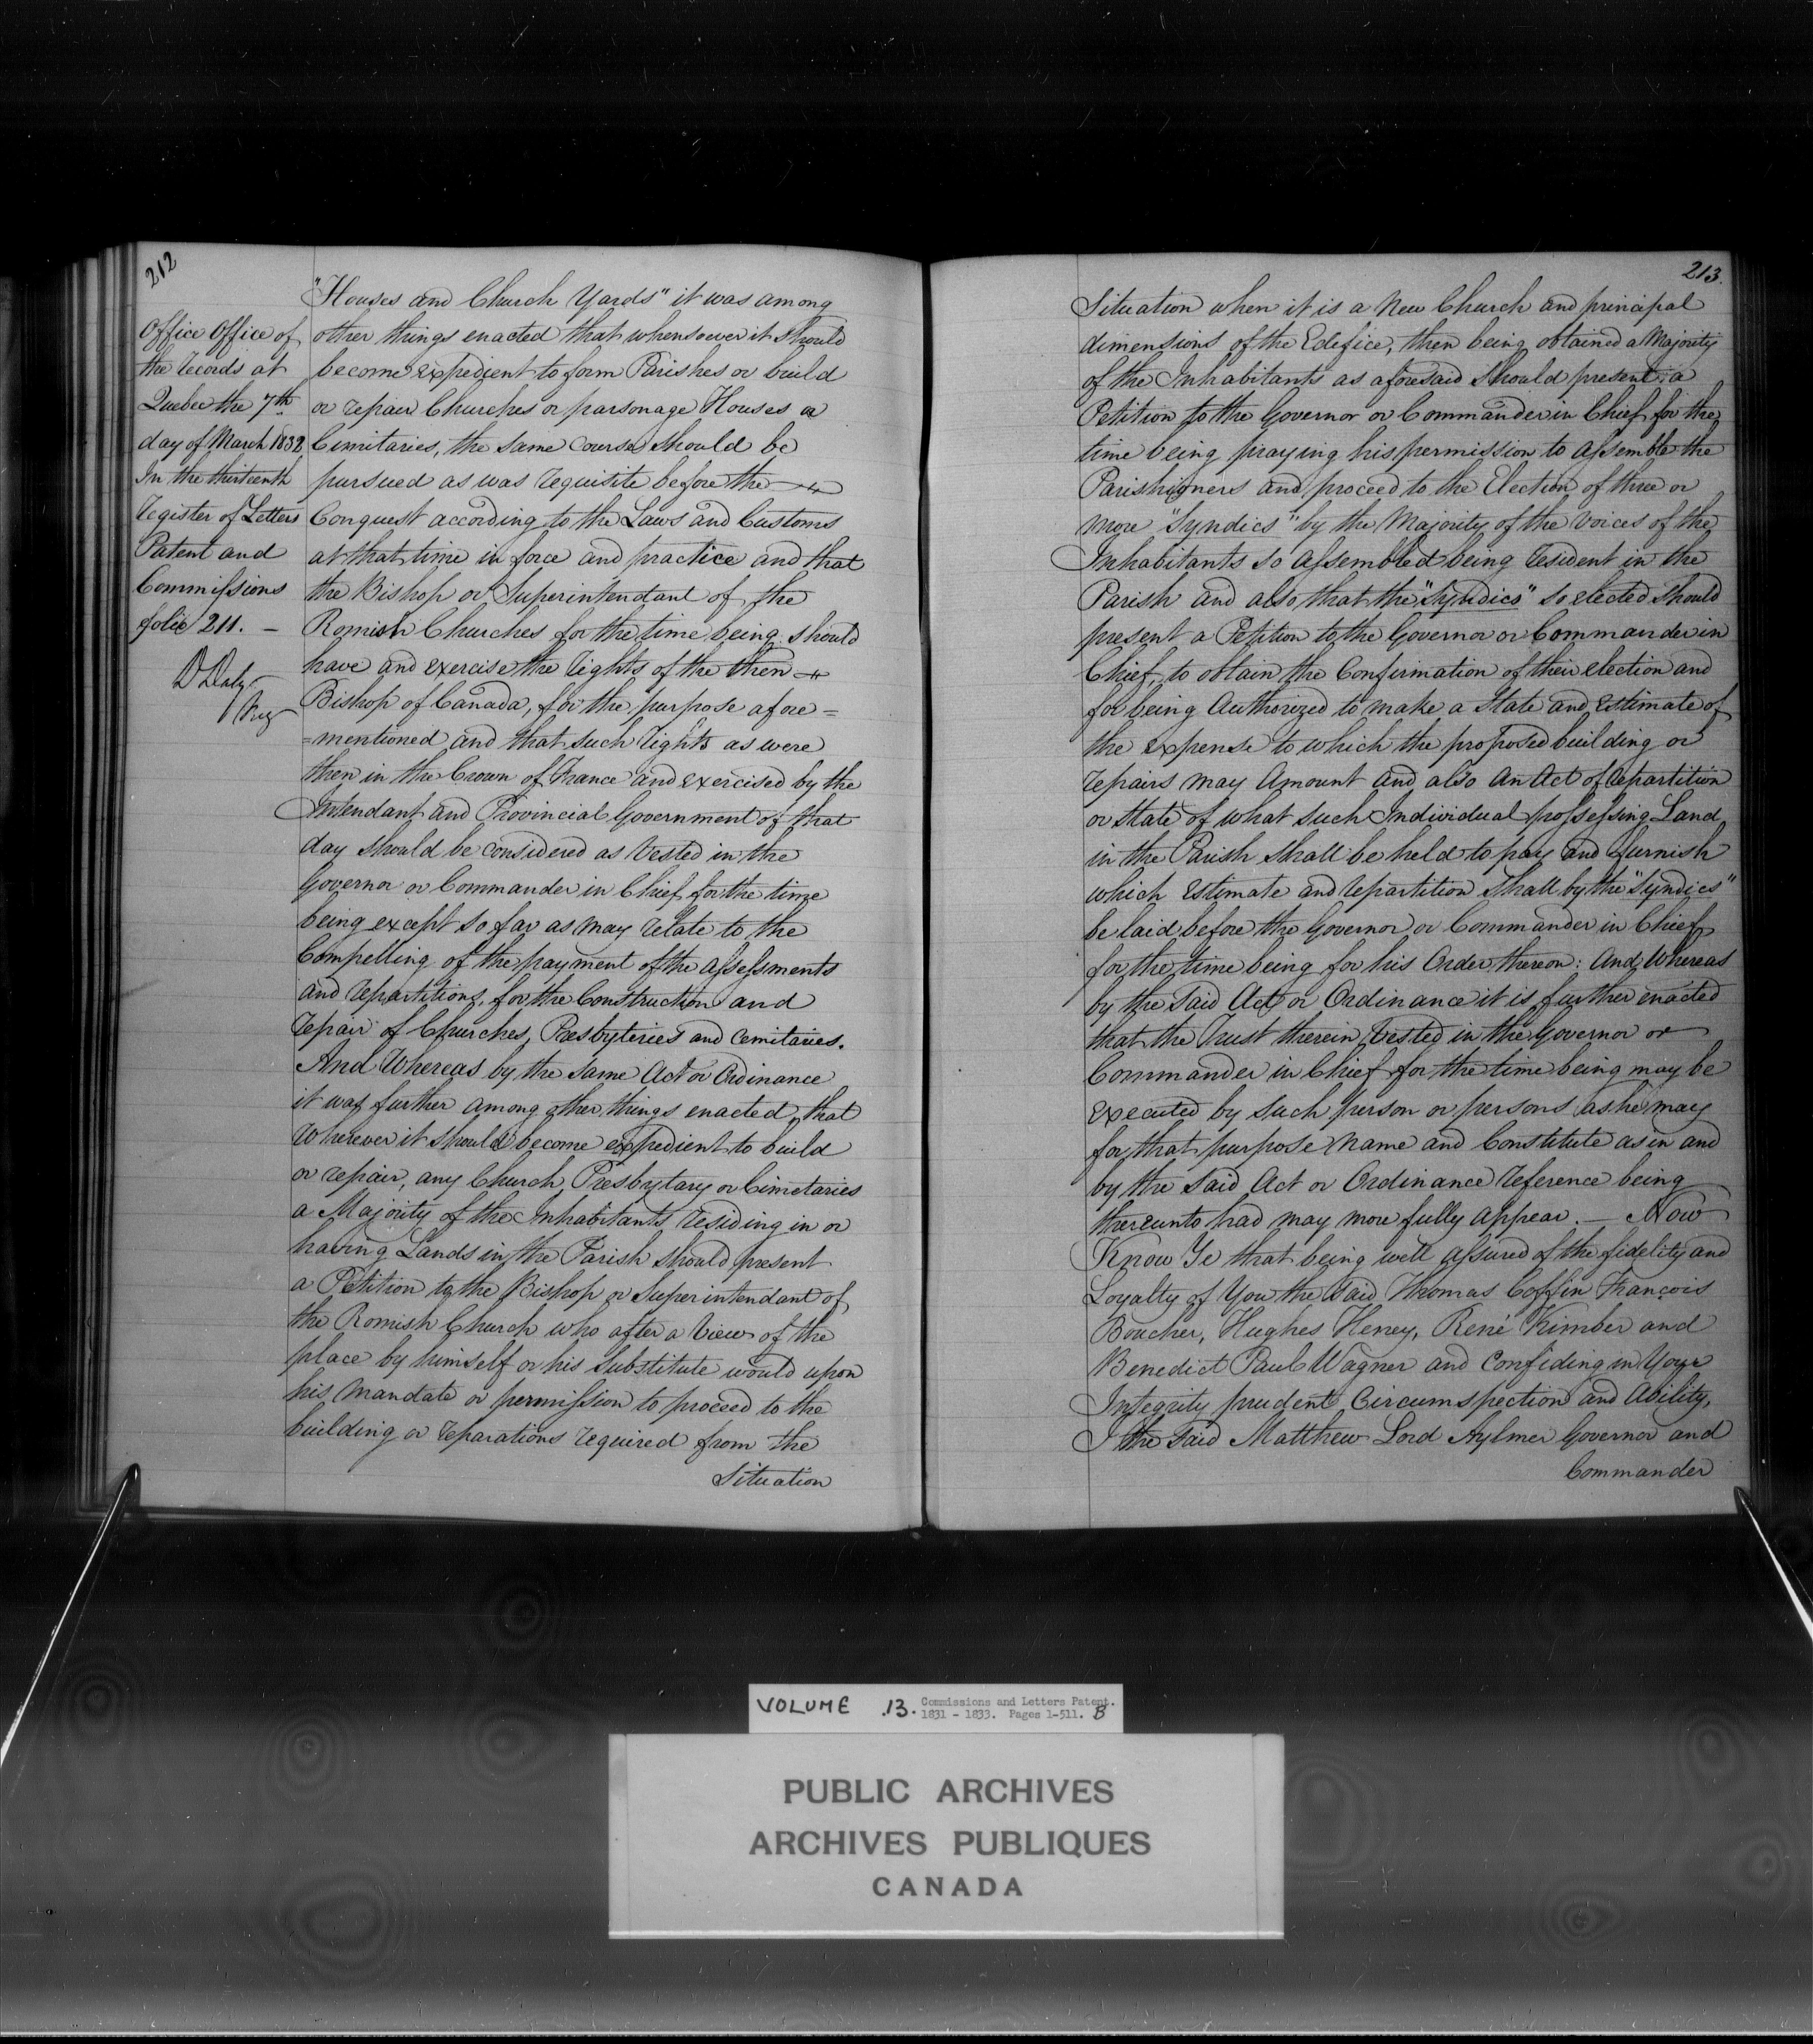 212
Office Office of
the Records at
Quebec the 7th
day of March 1832
In the thirteenth
Register of Letters
Patent and
Commissions
folio 211. —
D Daly
Reg
"Houses and Church Yards" it was among
other things enacted that whensoever it should
become expedient to form Parishes or build
or repair Churches or parsonage Houses or
Cimitaries, the same course should be
pursued as was requisite before the
Conquest according to the Laws and Customs
at that time in force and practice and that
the Bishop or Superintendant of the
Romish Churches for the time being should
have and exercise the rights of the then
Bishop of Canada, for the purpose afore=
=mentioned and that such rights as were
then in the Crown of France and exercised by the
Intendant and Provincial Government of that
day should be considered as Vested in the
Governor or Commander in Chief for the time
being except so far as may relate to the
Compelling of the payment of the assessments
and repartitions, for the Construction and
repair of Churches, Presbyteries and Cemitaries.
And Whereas by the same Act or Ordinance
it was further among other things enacted that
Wherever it should become expedient to build
or repair, any Church Presbytary or Cimetaries
a Majority of the Inhabitants residing in or
having Lands in the Parish should present
a Petition to the Bishop or Superintendant of
the Romish Church who after a View of the
place by himself or his Substitute would upon
his mandate or permission to proceed to the
building or reparations required from the
Situation
213.
Situation when it is a New Church and principal
dimensions of the Edifice, then being obtained a Majority
of the Inhabitants as aforesaid should present a
Petition to the Governor or Commander in Chief for the
time being praying his permission to assemble the
Parishioners and proceed to the Election of three or
more "Syndics" by the Majority of the voices of the
Inhabitants so assembled being resident in the
Parish and also that the "Syndics" so elected should
present a Petition to the Governor or Commander in
Chief, to obtain the Confirmation of their election and
for being Authorized to make a State and Estimate of
the expense to which the proposed building or
repairs may amount and also an Act of repartition
or State of what such Individual possessing Land
in the Parish shall be held to pay and furnish
which Estimate and repartition shall by the "Syndics"
be laid before the Governor or Commander in Chief
for the time being for his Order thereon: And Whereas
by the said Act or Ordinance it is further enacted
that the Trust therein Vested in the Governor or
Commander in Chief for the time being may be
executed by such person or persons as he may
for that purpose name and Constitute as in and
by the said Act or Ordinance reference being
thereunto had may more fully appear. — Now
Know Ye that being well assured of the fidelity and
Loyalty of You the said Thomas Coffin François
Boucher, Hughes Heney, René Kimber and
Benedict Paul Wagner and Confiding in Your
Integrity prudent Circumspection and Ability,
I the said Matthew Lord Aylmer Governor and
Commander
VOLUME 13. Commissions and Letters Patent.
1831 - 1833. Pages 1-511. B
PUBLIC ARCHIVES
ARCHIVES PUBLIQUES
CANADA